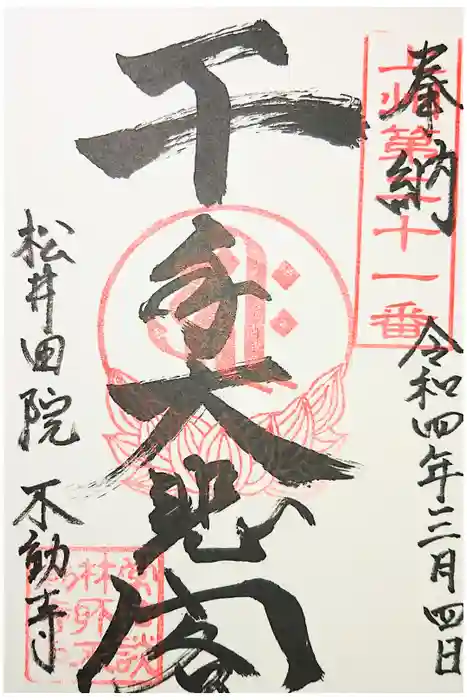 奉納
上州第三十一番
令和四年三月四日
千手大悲閣
松井田院 不動寺